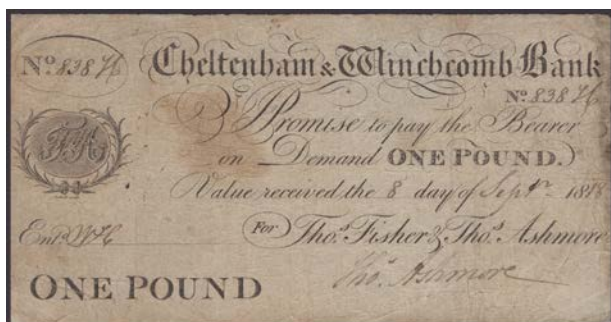 No. 838 76 Cheltenham & Winchcomb Bank
No. 838 76
I Promise to pay the Bearer
FA
on Demand ONE POUND.
Value received the 8 day of Septr. 1818
Entd. For Thos. Fisher & Thos. Ashmore
Thos. Ashmore
ONE POUND